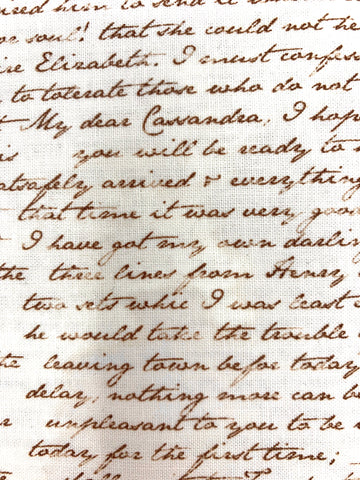 him to send it
or soul! that she could not be
Elizabeth. I must confess
to tolerate those who do not
My dear Cassandra, I hop
is you will be ready to
atsafely arrived & everything
that time it was very good
I have got my own darlin
the three lines from Henry
two sets whic I was least
he would take the trouble
the leaving town befor today
delay, nothing more can be
r unpleasant to you to be
today for the first time;